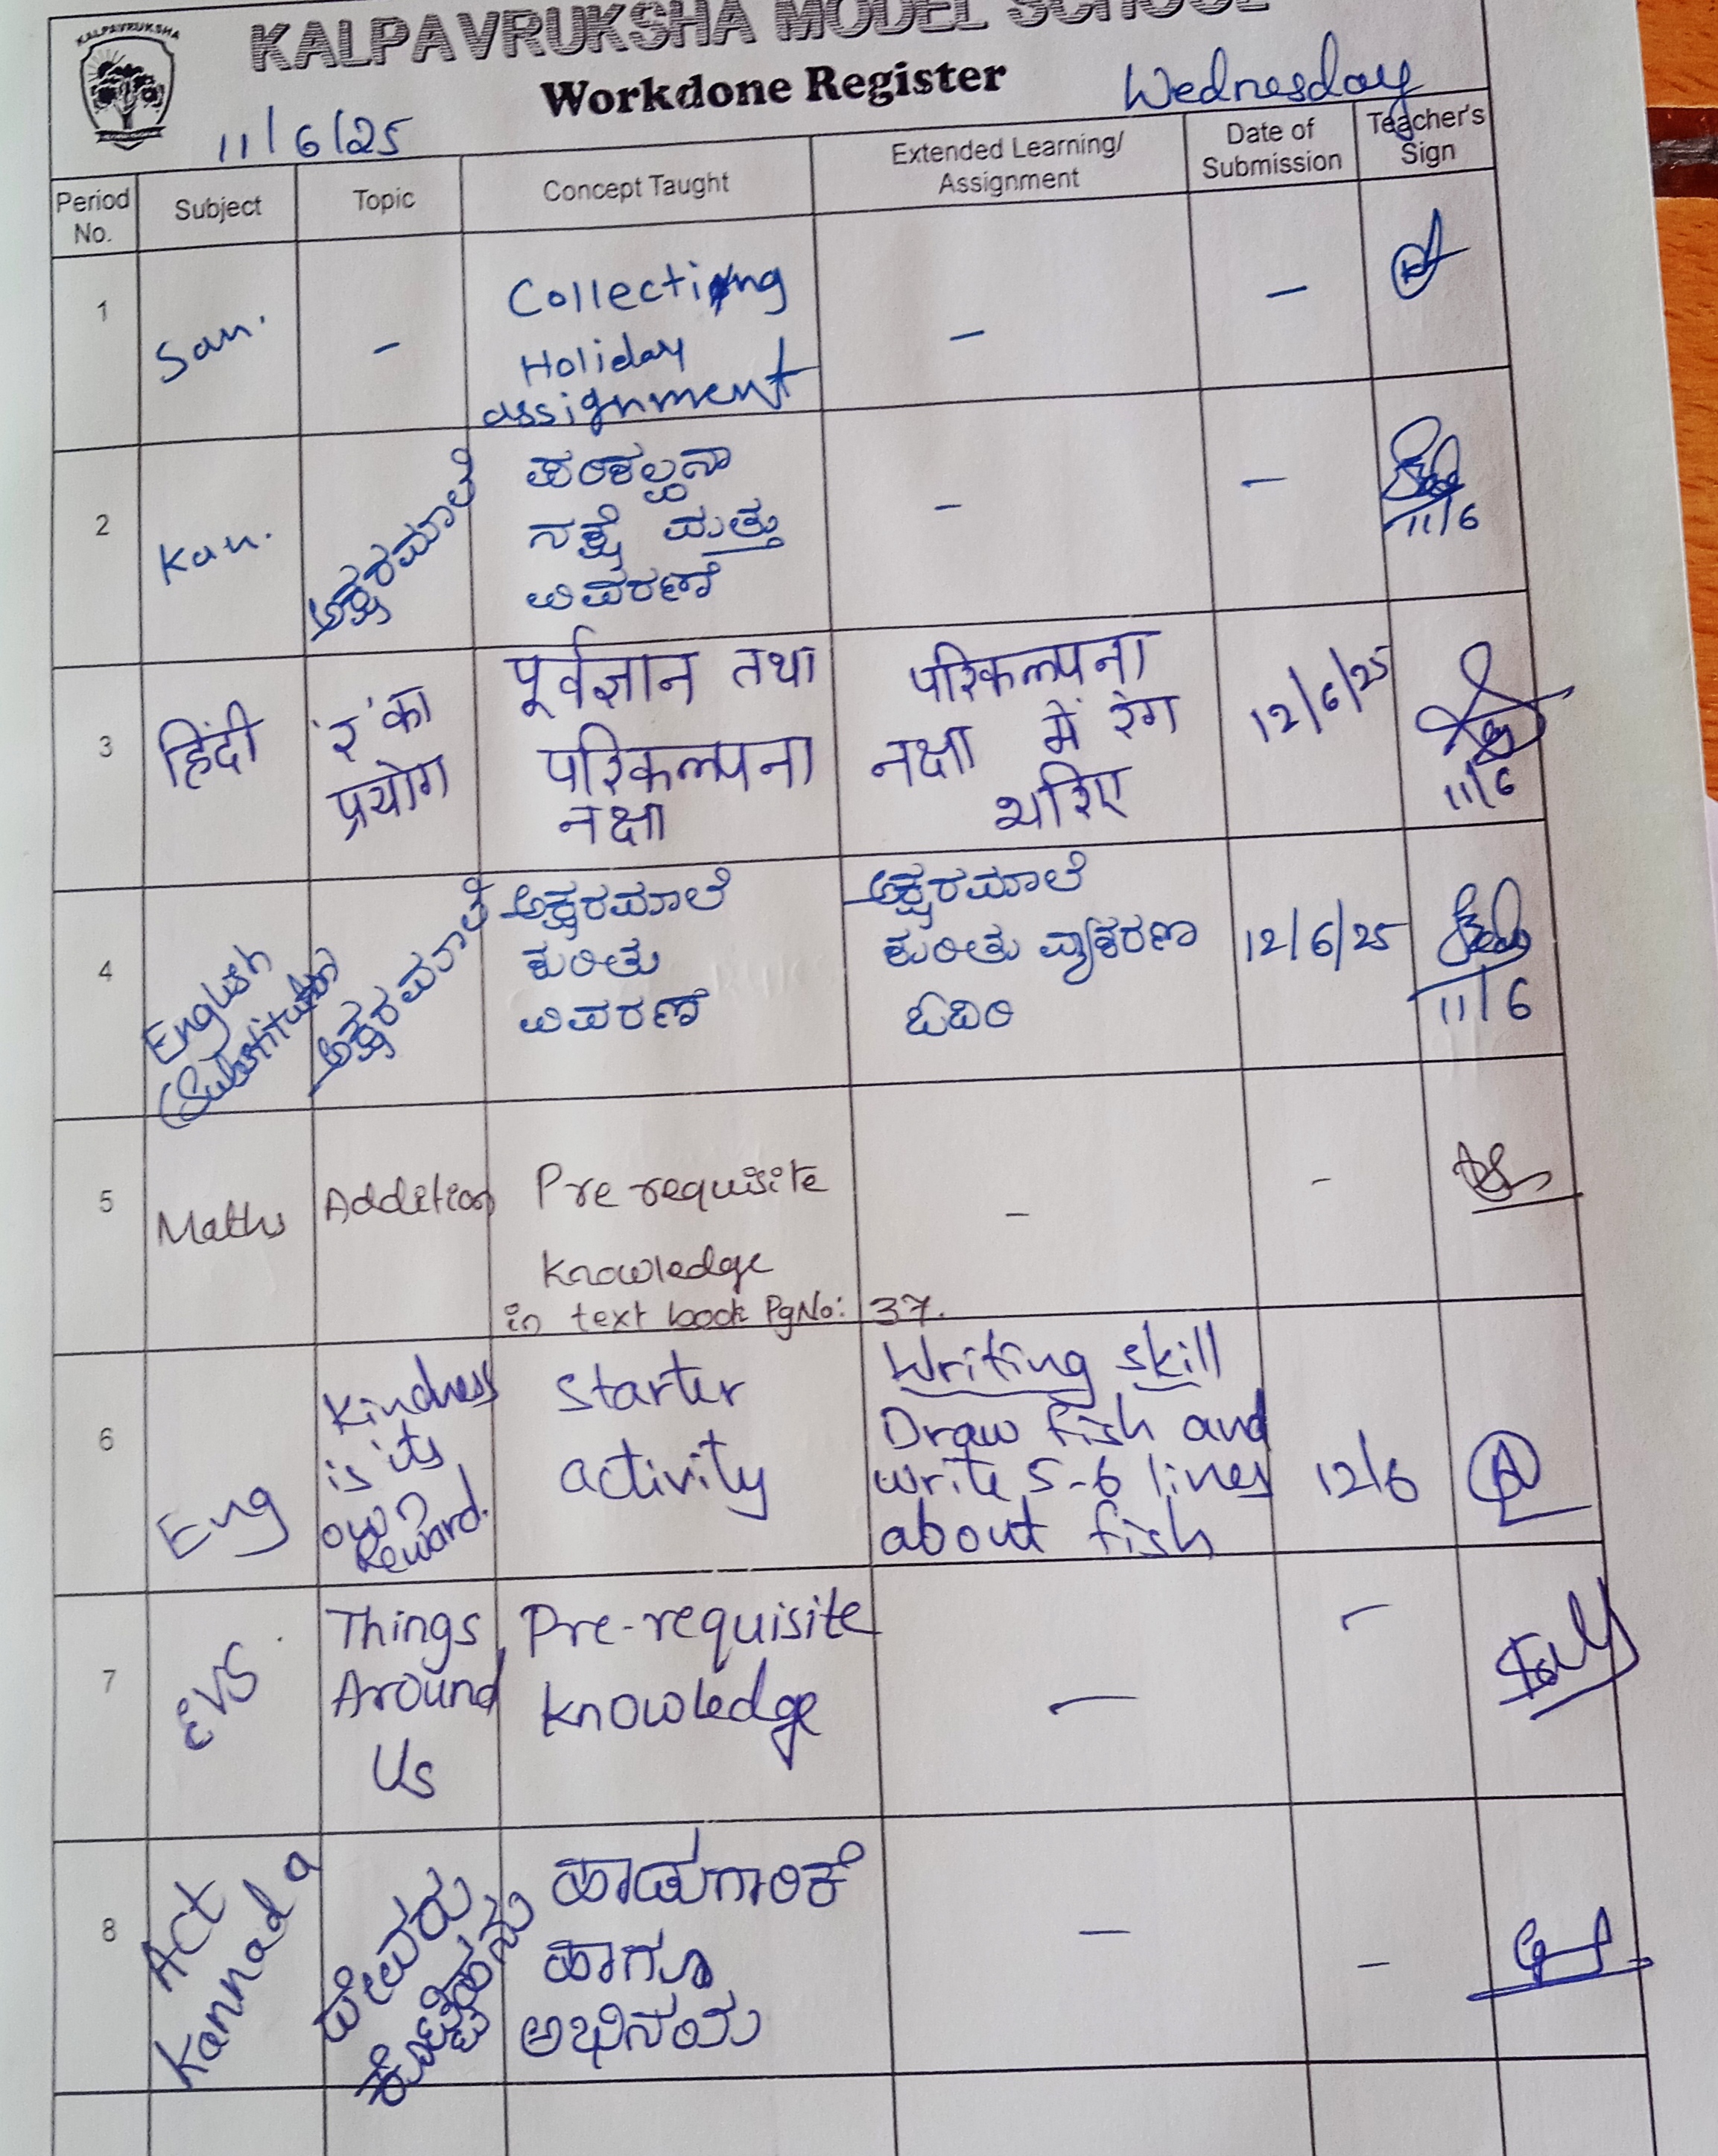 KALPAVRUKSHA
KALPAVRUKSHA MODEL SCHOOL
Workdone Register
11/6/25
Wednesday
Period No.
Subject
Topic
Concept Taught
Extended Learning/
Assignment
Date of
Submission
Teacher's
Sign
1
San.
-
Collecting
Holiday
assignment
-
-
2
Kan.
ಅಕ್ಷರಮಾಲೆ
ಪರಿಕಲ್ಪನಾ
ನಕ್ಷೆ ಮತ್ತು
ವಿವರಣೆ
-
-
11/6
3
हिंदी
'र' का
प्रयोग
पूर्वज्ञान तथा
परिकल्पना
नक्षा
परिकल्पना
नक्षा में रंग
भरिए
12/6/25
11/6
4
English
(Substitution)
ಅಕ್ಷರಮಾಲೆ
ಅಕ್ಷರಮಾಲೆ
ಕುರಿತು
ವಿವರಣೆ
ಅಕ್ಷರಮಾಲೆ
ಕುರಿತು ವ್ಯಾಕರಣ
ಓದಿರಿ
12/6/25
11/6
5
Maths
Addition
Pre requisite
knowledge
in text book PgNo: 37.
-
-
6
Eng
Kindness
is its
own
Reward.
Starter
activity
Writing skill
Draw fish and
write 5-6 lines
about fish
12/6
7
EVS
Things
Around
Us
Pre-requisite
knowledge
-
-
8
Act
Kannada
ದೇವರು
ಹಾಡುಗಾರಿಕೆ
ಹಾಗೂ
ಅಭಿನಯ
-
-